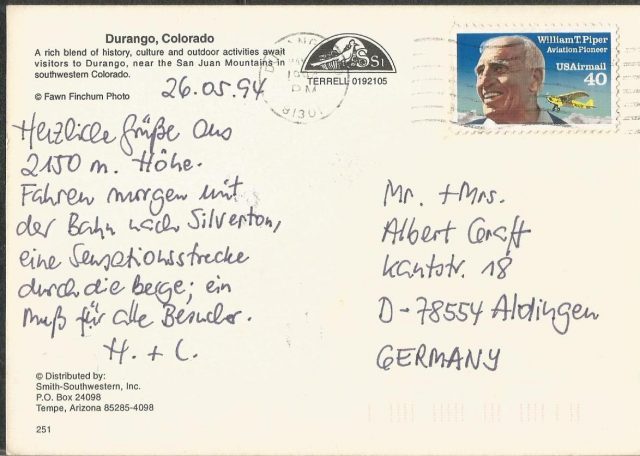 Durango, Colorado
A rich blend of history, culture and outdoor activities await
visitors to Durango, near the San Juan Mountains in
southwestern Colorado.
© Fawn Finchum Photo
26.05.94
SSi
TERRELL 0192105
PM
William T. Piper
Aviation Pioneer
USAirmail
40
Herzliche Grüße aus
2150 m. Höhe.
Fahren morgen mit
der Bahn nach Silverton,
eine Sensationsstrecke
durch die Berge; ein
muß für alle Besucher.
H. + C.
Mr. + Mrs.
Albert Graft
Kantstr. 18
D-78554 Aldingen
GERMANY
© Distributed by:
Smith-Southwestern, Inc.
P.O. Box 24098
Tempe, Arizona 85285-4098
251